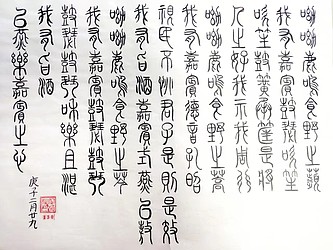 呦呦鹿鳴食野之苹
我有嘉賓鼓瑟吹笙
吹笙鼓簧承筐是將
人之好我示我周行
呦呦鹿鳴食野之蒿
我有嘉賓德音孔昭
視民不恌君子是則是傚
我有旨酒嘉賓式燕以敖
呦呦鹿鳴食野之芩
我有嘉賓鼓瑟鼓琴
鼓瑟鼓琴和樂且湛
我有旨酒
以燕樂嘉賓之心
庚子二月廿九